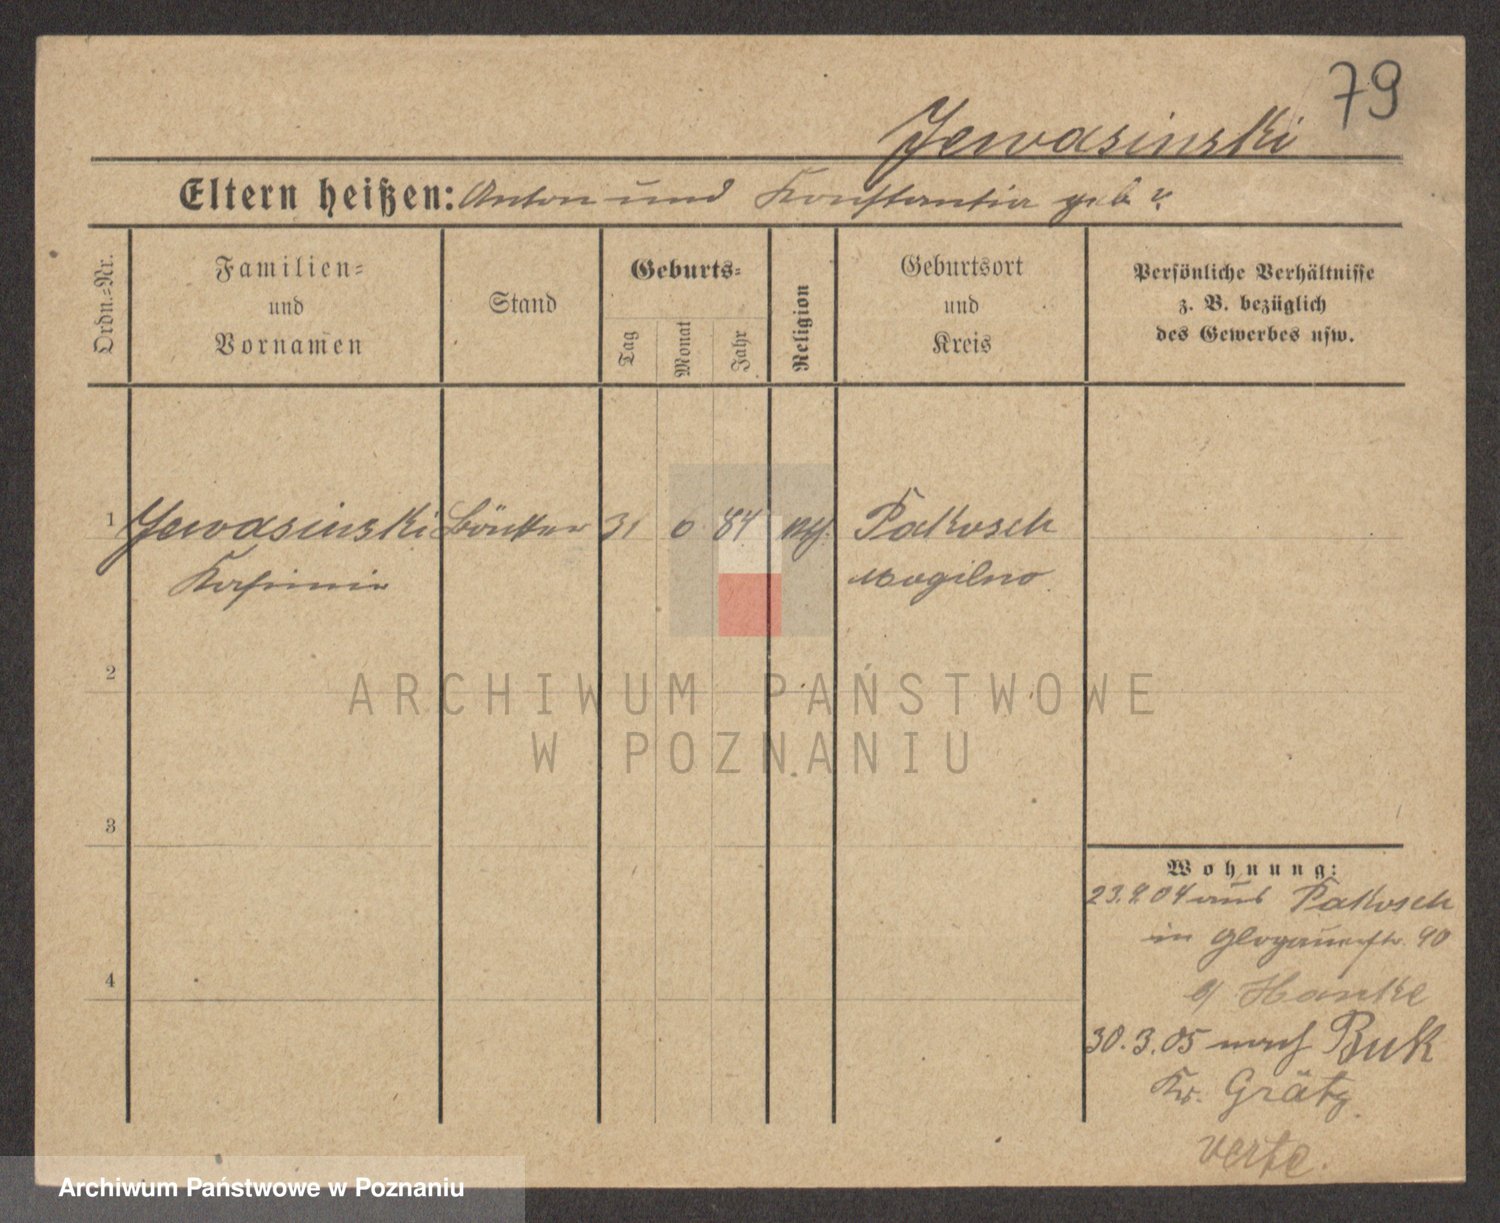 79
Jewasinski
Eltern heißen: Anton und Konstantia geb. v.
Ordn.-Nr.
Familien-
und
Vornamen
Stand
Geburts-
Tag
Monat
Jahr
Religion
Geburtsort
und
Kreis
Persönliche Verhältnisse
z. B. bezüglich
des Gewerbes usw.
1 Jewasinski 31 6 84 Pakosch
Kasimir Mogilno
2
3
4
Wohnung:
23.9.04 aus Pakosch
in Glogauerstr. 90
b/ Hanke
30.3.05 nach Buk
Kr. Grätz
verte.
ARCHIWUM PAŃSTWOWE
W POZNANIU
Archiwum Państwowe w Poznaniu